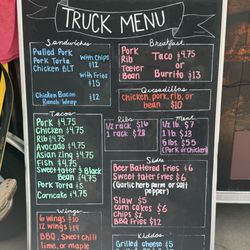 TRUCK MENU
Sandwiches
Pulled Pork
Pork Torta
Chicken BLT
With Chips
$12
with Fries
$15
Chicken Bacon
Ranch Wrap
$12
Breakfast
Pork
Rib
or
Bean
Taco $4.75
or
Burrito $13
Quesadillas
Chicken, pork, rib, or
bean $10
Tacos
Pork $4.75
Chicken $4.75
Rib $4.75
Avocado $4.75
Asian Zing $4.75
Fish $4.75
Sweet tater & Black
Bean $4.75
Pork Torta
Corncake $4.75
Ribs
1/2 rack $16
1 rack $28
Meat
1/2 lb. $7
1 lb $13
5 lbs $55
(Pork or chicken)
Sides
Beer Battered Fries $6
Sweet tater Fries $6
(Garlic herb parm or salt
pepper)
Slaw $5
corn cakes $6
chips $2
BBQ Fries $12
Wings
6 wings $10
12 wings $19
BBQ, Sweet chili
lime, or maple
Kiddos
Grilled cheese $5